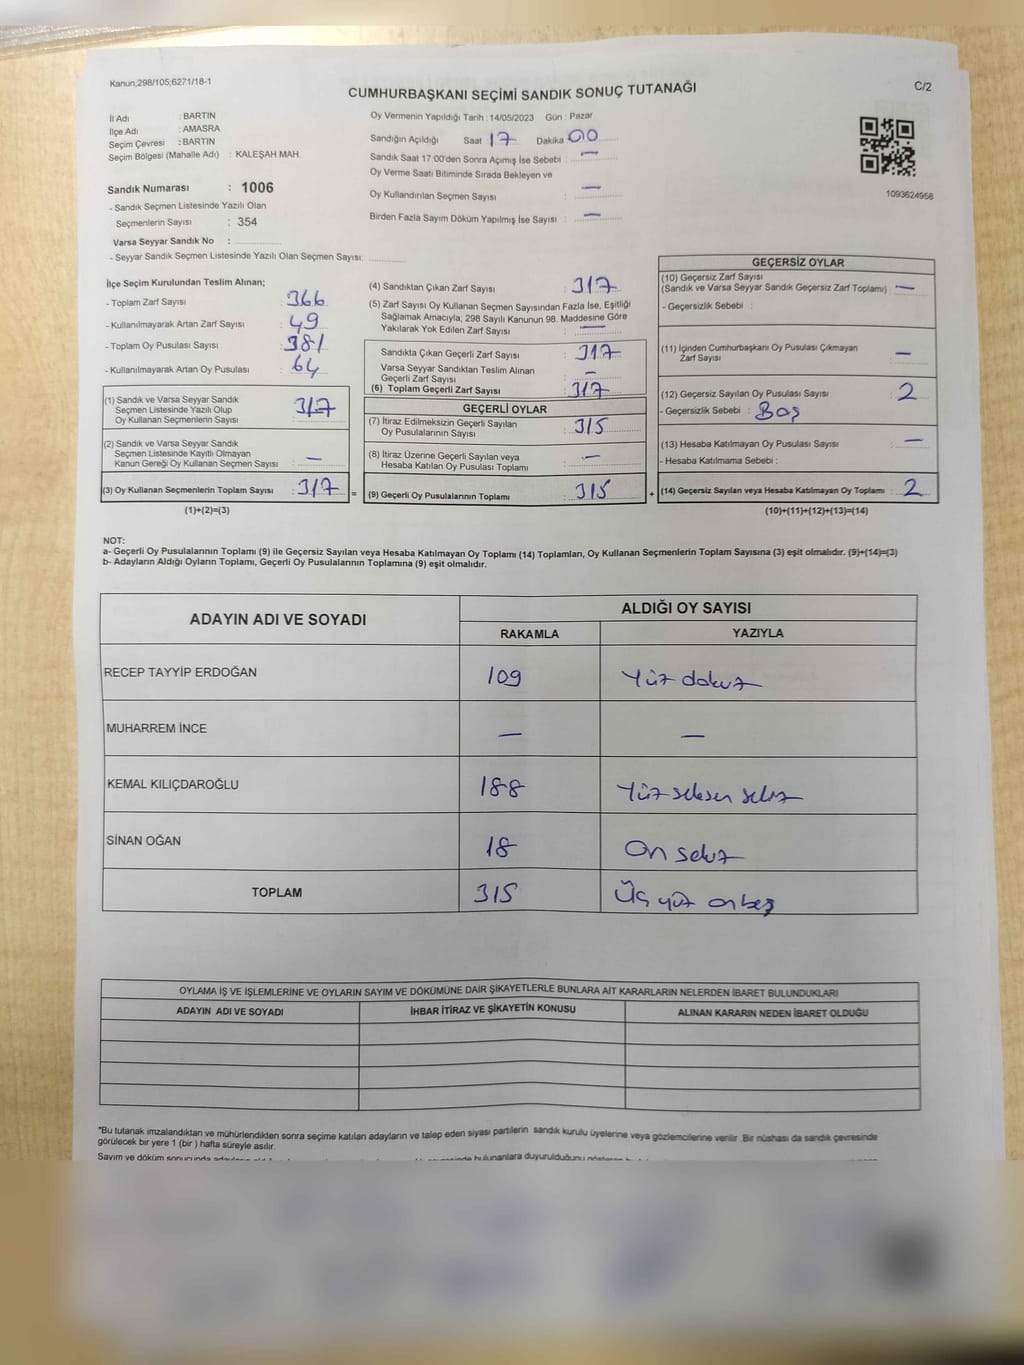 Kanun;298/105;6271/18-1
CUMHURBAŞKANI SEÇİMİ SANDIK SONUÇ TUTANAĞI
C/2
İl Adı : BARTIN
İlçe Adı : AMASRA
Seçim Çevresi : BARTIN
Seçim Bölgesi (Mahalle Adı) : KALEŞAH MAH.
Sandık Numarası : 1006
- Sandık Seçmen Listesinde Yazılı Olan
Seçmenlerin Sayısı : 354
Varsa Seyyar Sandık No :
- Seyyar Sandık Seçmen Listesinde Yazılı Olan Seçmen Sayısı:
Oy Vermenin Yapıldığı Tarih : 14/05/2023 Gün : Pazar
Sandığın Açıldığı Saat 17 Dakika 00
Sandık Saat 17:00'den Sonra Açımış İse Sebebi : —
Oy Verme Saati Bitiminde Sırada Bekleyen ve
Oy Kullandırılan Seçmen Sayısı : —
Birden Fazla Sayım Döküm Yapılmış İse Sayısı : —
1093624958
İlçe Seçim Kurulundan Teslim Alınan;
- Toplam Zarf Sayısı : 366
- Kullanılmayarak Artan Zarf Sayısı : 49
- Toplam Oy Pusulası Sayısı : 381
- Kullanılmayarak Artan Oy Pusulası : 64
(1) Sandık ve Varsa Seyyar Sandık
Seçmen Listesinde Yazılı Olup
Oy Kullanan Seçmenlerin Sayısı : 317
(2) Sandık ve Varsa Seyyar Sandık
Seçmen Listesinde Kayıtlı Olmayan
Kanun Gereği Oy Kullanan Seçmen Sayısı : —
(3) Oy Kullanan Seçmenlerin Toplam Sayısı : 317
(1)+(2)=(3)
(4) Sandıktan Çıkan Zarf Sayısı : 317
(5) Zarf Sayısı Oy Kullanan Seçmen Sayısından Fazla İse, Eşitliği
Sağlamak Amacıyla; 298 Sayılı Kanunun 98. Maddesine Göre
Yakılarak Yok Edilen Zarf Sayısı : —
Sandıkta Çıkan Geçerli Zarf Sayısı : 317
Varsa Seyyar Sandıktan Teslim Alınan
Geçerli Zarf Sayısı : —
(6) Toplam Geçerli Zarf Sayısı : 317
GEÇERLİ OYLAR
(7) İtiraz Edilmeksizin Geçerli Sayılan
Oy Pusulalarının Sayısı : 315
(8) İtiraz Üzerine Geçerli Sayılan veya
Hesaba Katılan Oy Pusulası Toplamı : —
= (9) Geçerli Oy Pusulalarının Toplamı : 315
GEÇERSİZ OYLAR
(10) Geçersiz Zarf Sayısı
(Sandık ve Varsa Seyyar Sandık Geçersiz Zarf Toplamı) : —
- Geçersizlik Sebebi :
(11) İçinden Cumhurbaşkanı Oy Pusulası Çıkmayan
Zarf Sayısı : —
(12) Geçersiz Sayılan Oy Pusulası Sayısı : 2
- Geçersizlik Sebebi : Boş
(13) Hesaba Katılmayan Oy Pusulası Sayısı : —
- Hesaba Katılmama Sebebi :
+ (14) Geçersiz Sayılan veya Hesaba Katılmayan Oy Toplamı : 2
(10)+(11)+(12)+(13)=(14)
NOT:
a- Geçerli Oy Pusulalarının Toplamı (9) ile Geçersiz Sayılan veya Hesaba Katılmayan Oy Toplamı (14) Toplamları, Oy Kullanan Seçmenlerin Toplam Sayısına (3) eşit olmalıdır. (9)+(14)=(3)
b- Adayların Aldığı Oyların Toplamı, Geçerli Oy Pusulalarının Toplamına (9) eşit olmalıdır.
ADAYIN ADI VE SOYADI ALDIĞI OY SAYISI
RAKAMLA YAZIYLA
RECEP TAYYİP ERDOĞAN 109 Yüz dokuz
MUHARREM İNCE — —
KEMAL KILIÇDAROĞLU 188 Yüz seksen sekiz
SİNAN OĞAN 18 On sekiz
TOPLAM 315 Üç yüz onbeş
OYLAMA İŞ VE İŞLEMLERİNE VE OYLARIN SAYIM VE DÖKÜMÜNE DAİR ŞİKAYETLERLE BUNLARA AİT KARARLARIN NELERDEN İBARET BULUNDUKLARI
ADAYIN ADI VE SOYADI İHBAR İTİRAZ VE ŞİKAYETİN KONUSU ALINAN KARARIN NEDEN İBARET OLDUĞU
*Bu tutanak imzalandıktan ve mühürlendikten sonra seçime katılan adayların ve talep eden siyasi partilerin sandık kurulu üyelerine veya gözlemcilerine verilir .Bir nüshası da sandık çevresinde
görülecek bir yere 1 (bir ) hafta süreyle asılır.
Sayım ve döküm sonucunda